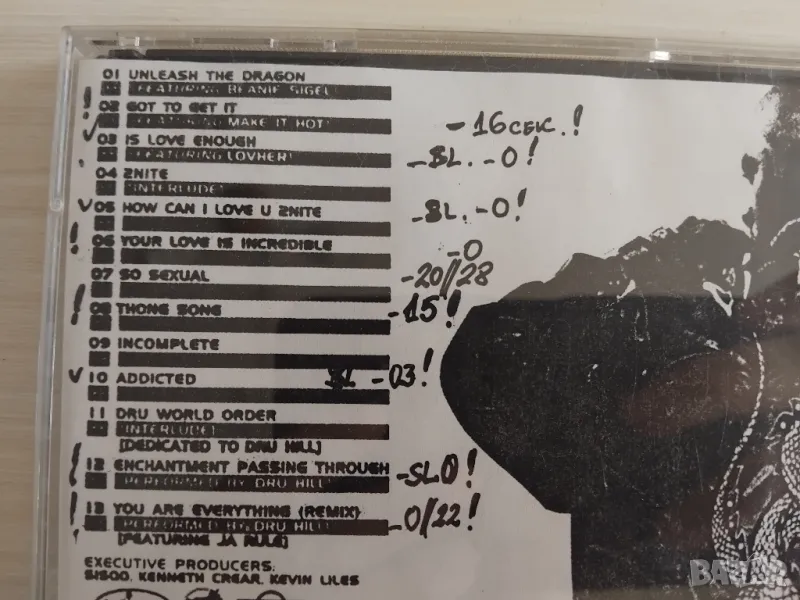 01 UNLEASH THE DRAGON
[FEATURING BEANIE SIGEL]
! 02 GOT TO GET IT
[FEATURING MAKE IT HOT] -16 сек.!
✓ 03 IS LOVE ENOUGH
[FEATURING LOVHER] -SL. -0!
04 2NITE
[INTERLUDE]
✓ 05 HOW CAN I LOVE U 2NITE -SL. -0!
! 06 YOUR LOVE IS INCREDIBLE -0
07 SO SEXUAL -20//28
! 08 THONG SONG -15!
09 INCOMPLETE
✓ 10 ADDICTED SL -03!
11 DRU WORLD ORDER
[INTERLUDE]
[DEDICATED TO DRU HILL]
! 12 ENCHANTMENT PASSING THROUGH -SL0!
[PERFORMED BY DRU HILL]
! 13 YOU ARE EVERYTHING (REMIX) -0/22!
[PERFORMED BY DRU HILL]
[FEATURING JA RULE]
EXECUTIVE PRODUCERS:
SISQO, KENNETH CREAR, KEVIN LILES
BAZAR